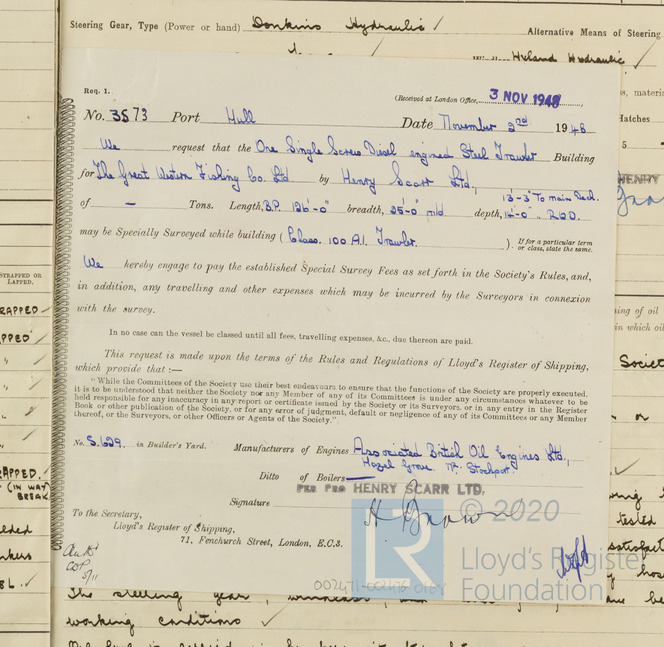 Steering Gear, Type (Power or hand) Donkins Hydraulic ✓ Alternative Means of Steering
Hyland Hydraulic
Req. 1. (Received at London Office, 3 NOV 1948 )
No. 3573 Port Hull Date November 2nd 1948
We request that the One Single Screw Diesel engined Steel Trawler Building
for The Great Western Fishing Co. Ltd by Henry Scarr Ltd,
13'-3" To main Deck.
of — Tons. Length, B.P. 126'-0" breadth, 25'-0" mld depth, 14'-0" R.Q.D.
may be Specially Surveyed while building ( Class. 100 A.1. Trawler. ). If for a particular term or class, state the same.
We hereby engage to pay the established Special Survey Fees as set forth in the Society's Rules, and,
in addition, any travelling and other expenses which may be incurred by the Surveyors in connexion
with the survey.
In no case can the vessel be classed until all fees, travelling expenses, &c., due thereon are paid.
This request is made upon the terms of the Rules and Regulations of Lloyd's Register of Shipping,
which provide that :—
"While the Committees of the Society use their best endeavours to ensure that the functions of the Society are properly executed,
it is to be understood that neither the Society nor any Member of any of its Committees is under any circumstances whatever to be
held responsible for any inaccuracy in any report or certificate issued by the Society or its Surveyors, or in any entry in the Register
Book or other publication of the Society, or for any error of judgment, default or negligence of any of its Committees or any Member
thereof, or the Surveyors, or other Officers or Agents of the Society."
No. S.629. in Builder's Yard. Manufacturers of Engines Associated British Oil Engines Ltd,
Hazel Grove Nr. Stockport.
Ditto of Boilers —
PER PRO HENRY SCARR LTD.
Signature H Brown
To the Secretary,
Lloyd's Register of Shipping,
71, Fenchurch Street, London, E.C.3.
© 2020
Lloyd's Register
Foundation
002471-002476-0164
5/11
STRAPPED OR
LAPPED.
HENRY
Hatches
Society
(IN WAY
BREAK
The steering gear, windlass,
working conditions ✓